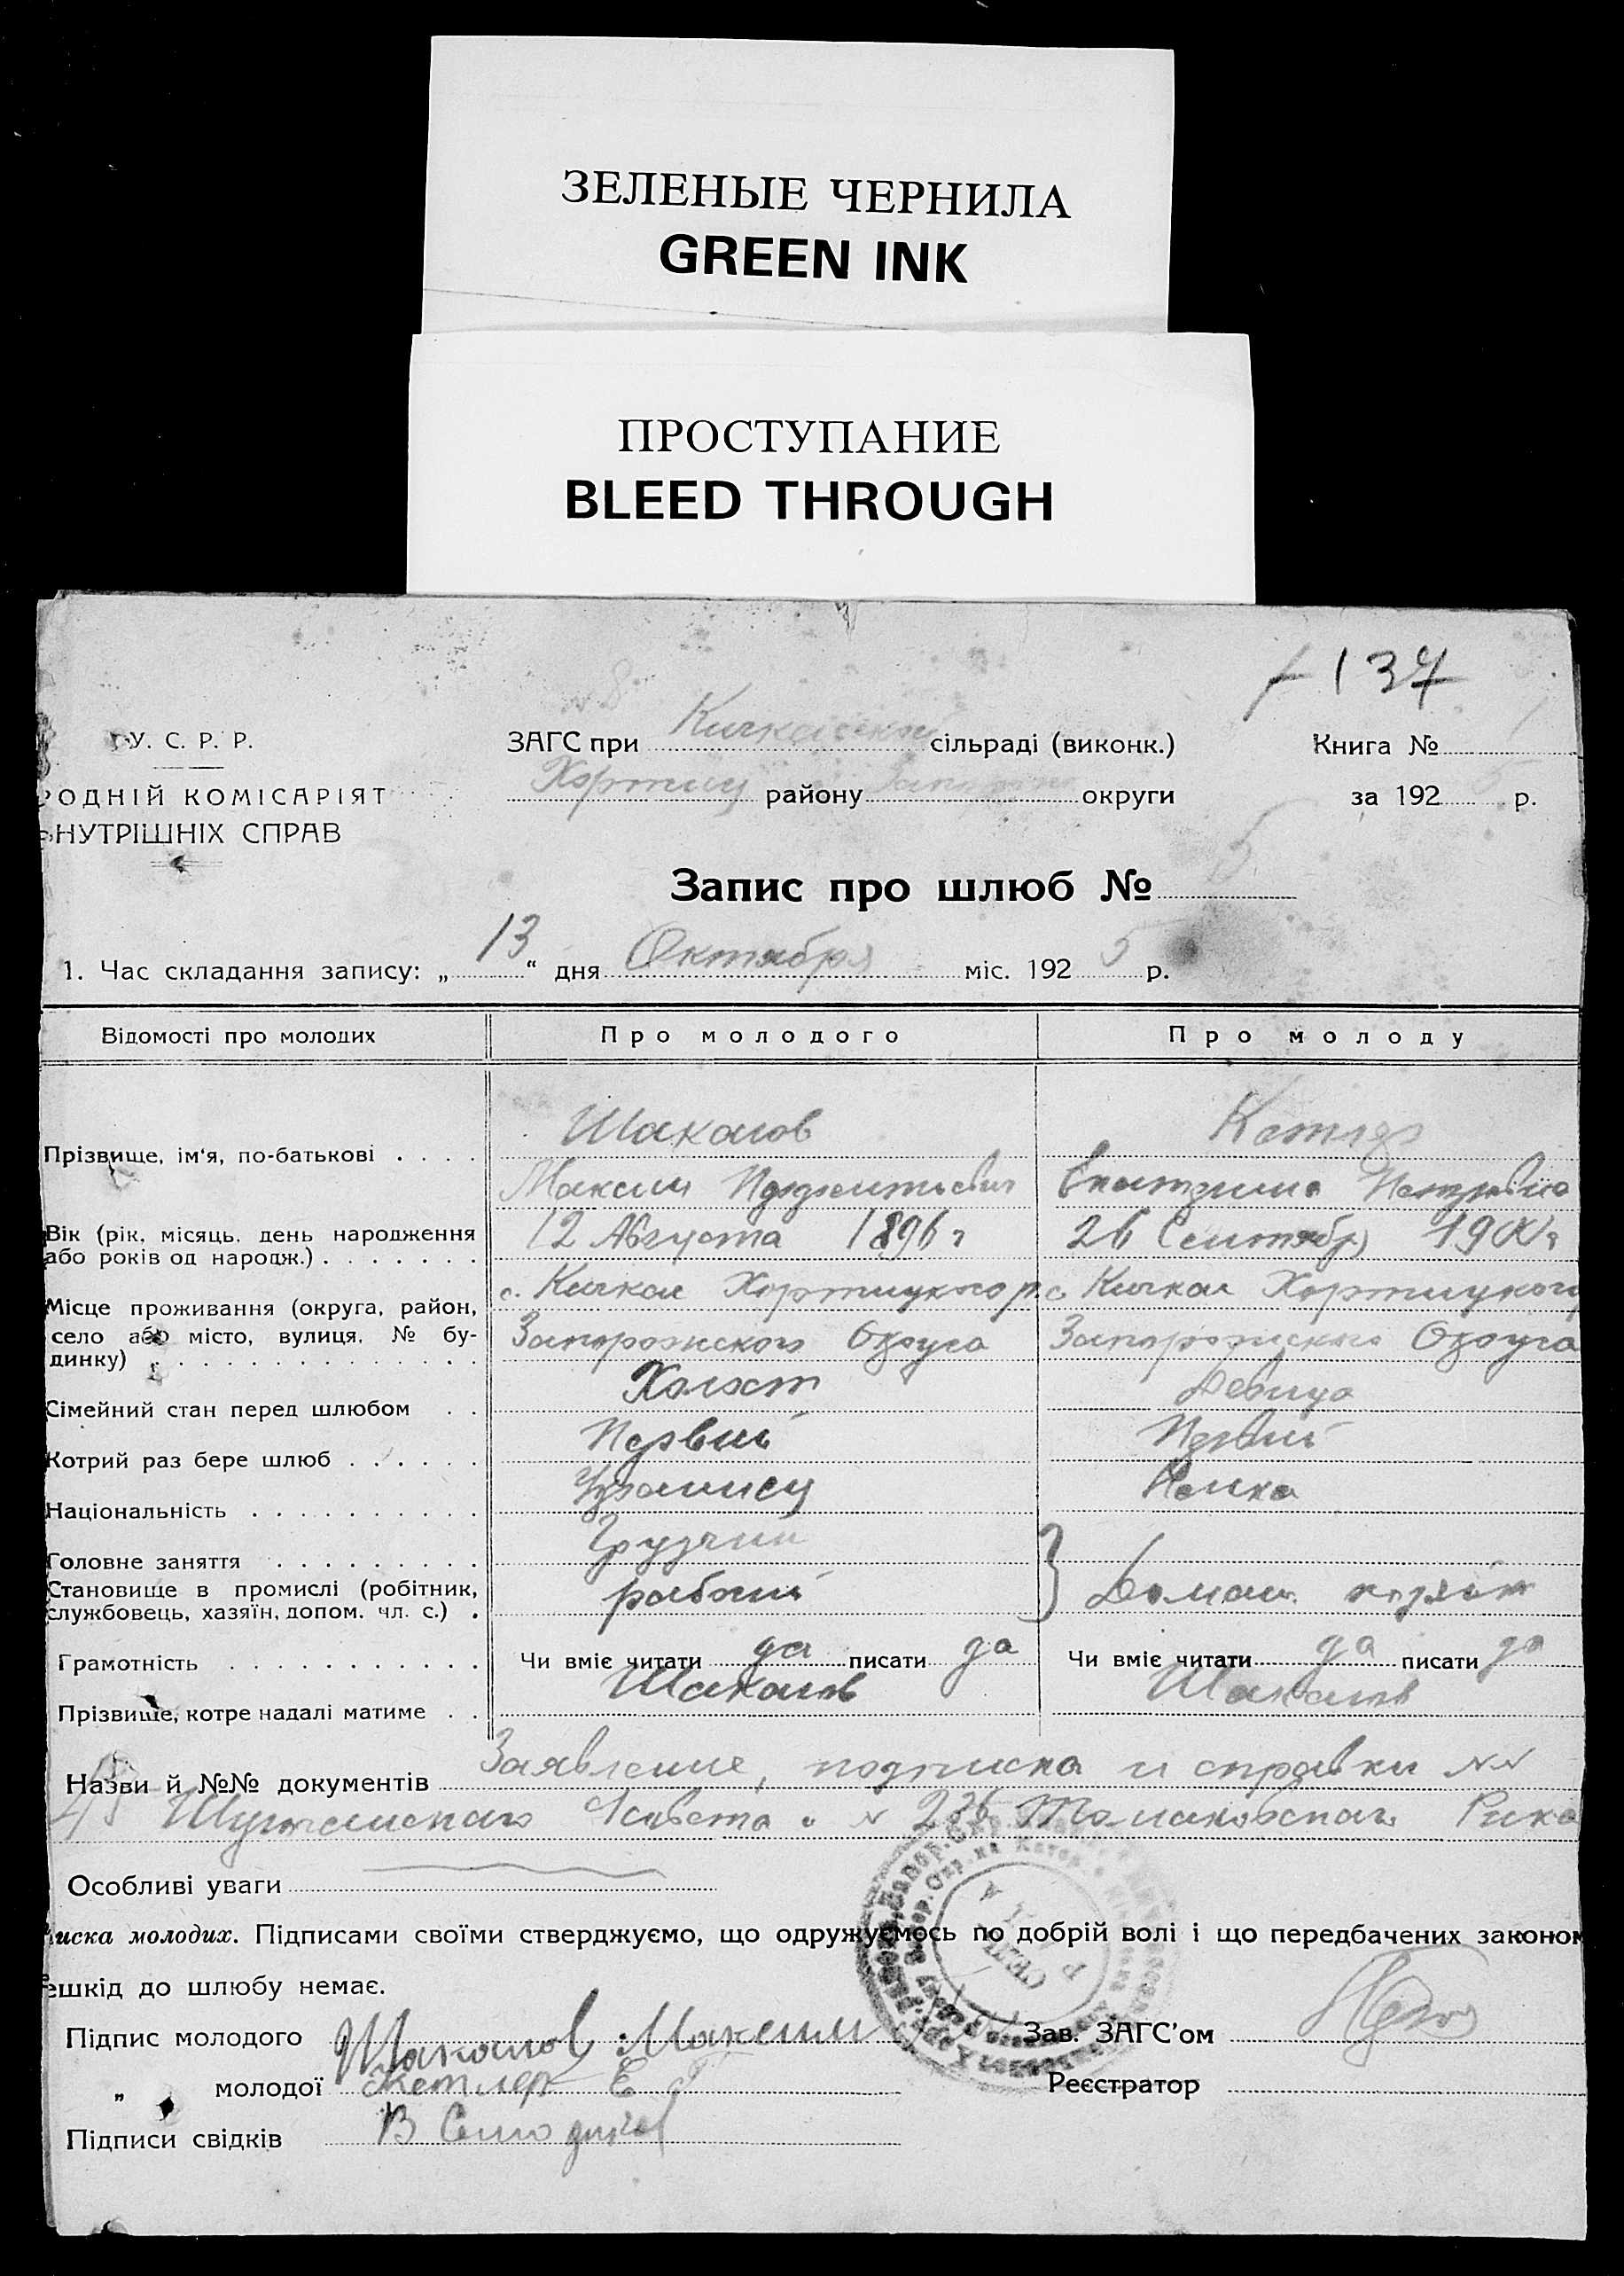 ЗЕЛЕНЫЕ ЧЕРНИЛА
GREEN INK
ПРОСТУПАНИЕ
BLEED THROUGH
137
У. С. Р. Р.
РОДНІЙ КОМІСАРІЯТ
ВНУТРІШНІХ СПРАВ
ЗАГС при Кичкаской сільраді (виконк.) Книга № 1
Хортиц району Запорож округи за 192 5 р.
Запис про шлюб № 5
1. Час складання запису: „ 13 “ дня Октября міс. 192 5 р.
Відомості про молодих Про молодого Про молоду
Прізвище, ім‘я, по-батькові . . . . Шакалов Кетлер
Максим Екатерина Петровна
Вік (рік, місяць, день народження або років од народж.) . . . . . . . 12 Августа 1896 г 26 Сентябр 1900 г
Місце проживання (округа, район, село або місто, вулиця, № будинку) . . . с. Кичкас Хортицкого р. с Кичкас Хортицкого
Запорожского Округа Запорожского Округа
Сімейний стан перед шлюбом . . Холост Девица
Котрий раз бере шлюб . . . . . . Первый Первый
Національність . . . . . . . . . . Украинец Немка
Головне заняття . . . . . . . . . Грузчик
Становище в промислі (робітник, службовець, хазяїн, допом. чл. с.) . рабочий Домаш. хозяйк
Грамотність . . . . . . . . . . . Чи вміє читати да писати да Чи вміє читати да писати да
Прізвище, котре надалі матиме . . Шакалов Шакалов
Назви й №№ документів Заявление, подписка и справки №№
45 Совета и № 226 Томаковского Рика
Особливі уваги
иска молодих. Підписами своїми стверджуємо, що одружуємось по добрій волі і що передбачених законом
ешкід до шлюбу немає.
Підпис молодого Шакалов Максим Зав. ЗАГС’ом
„ молодої Кетлер Е Реєстратор
Підписи свідків В